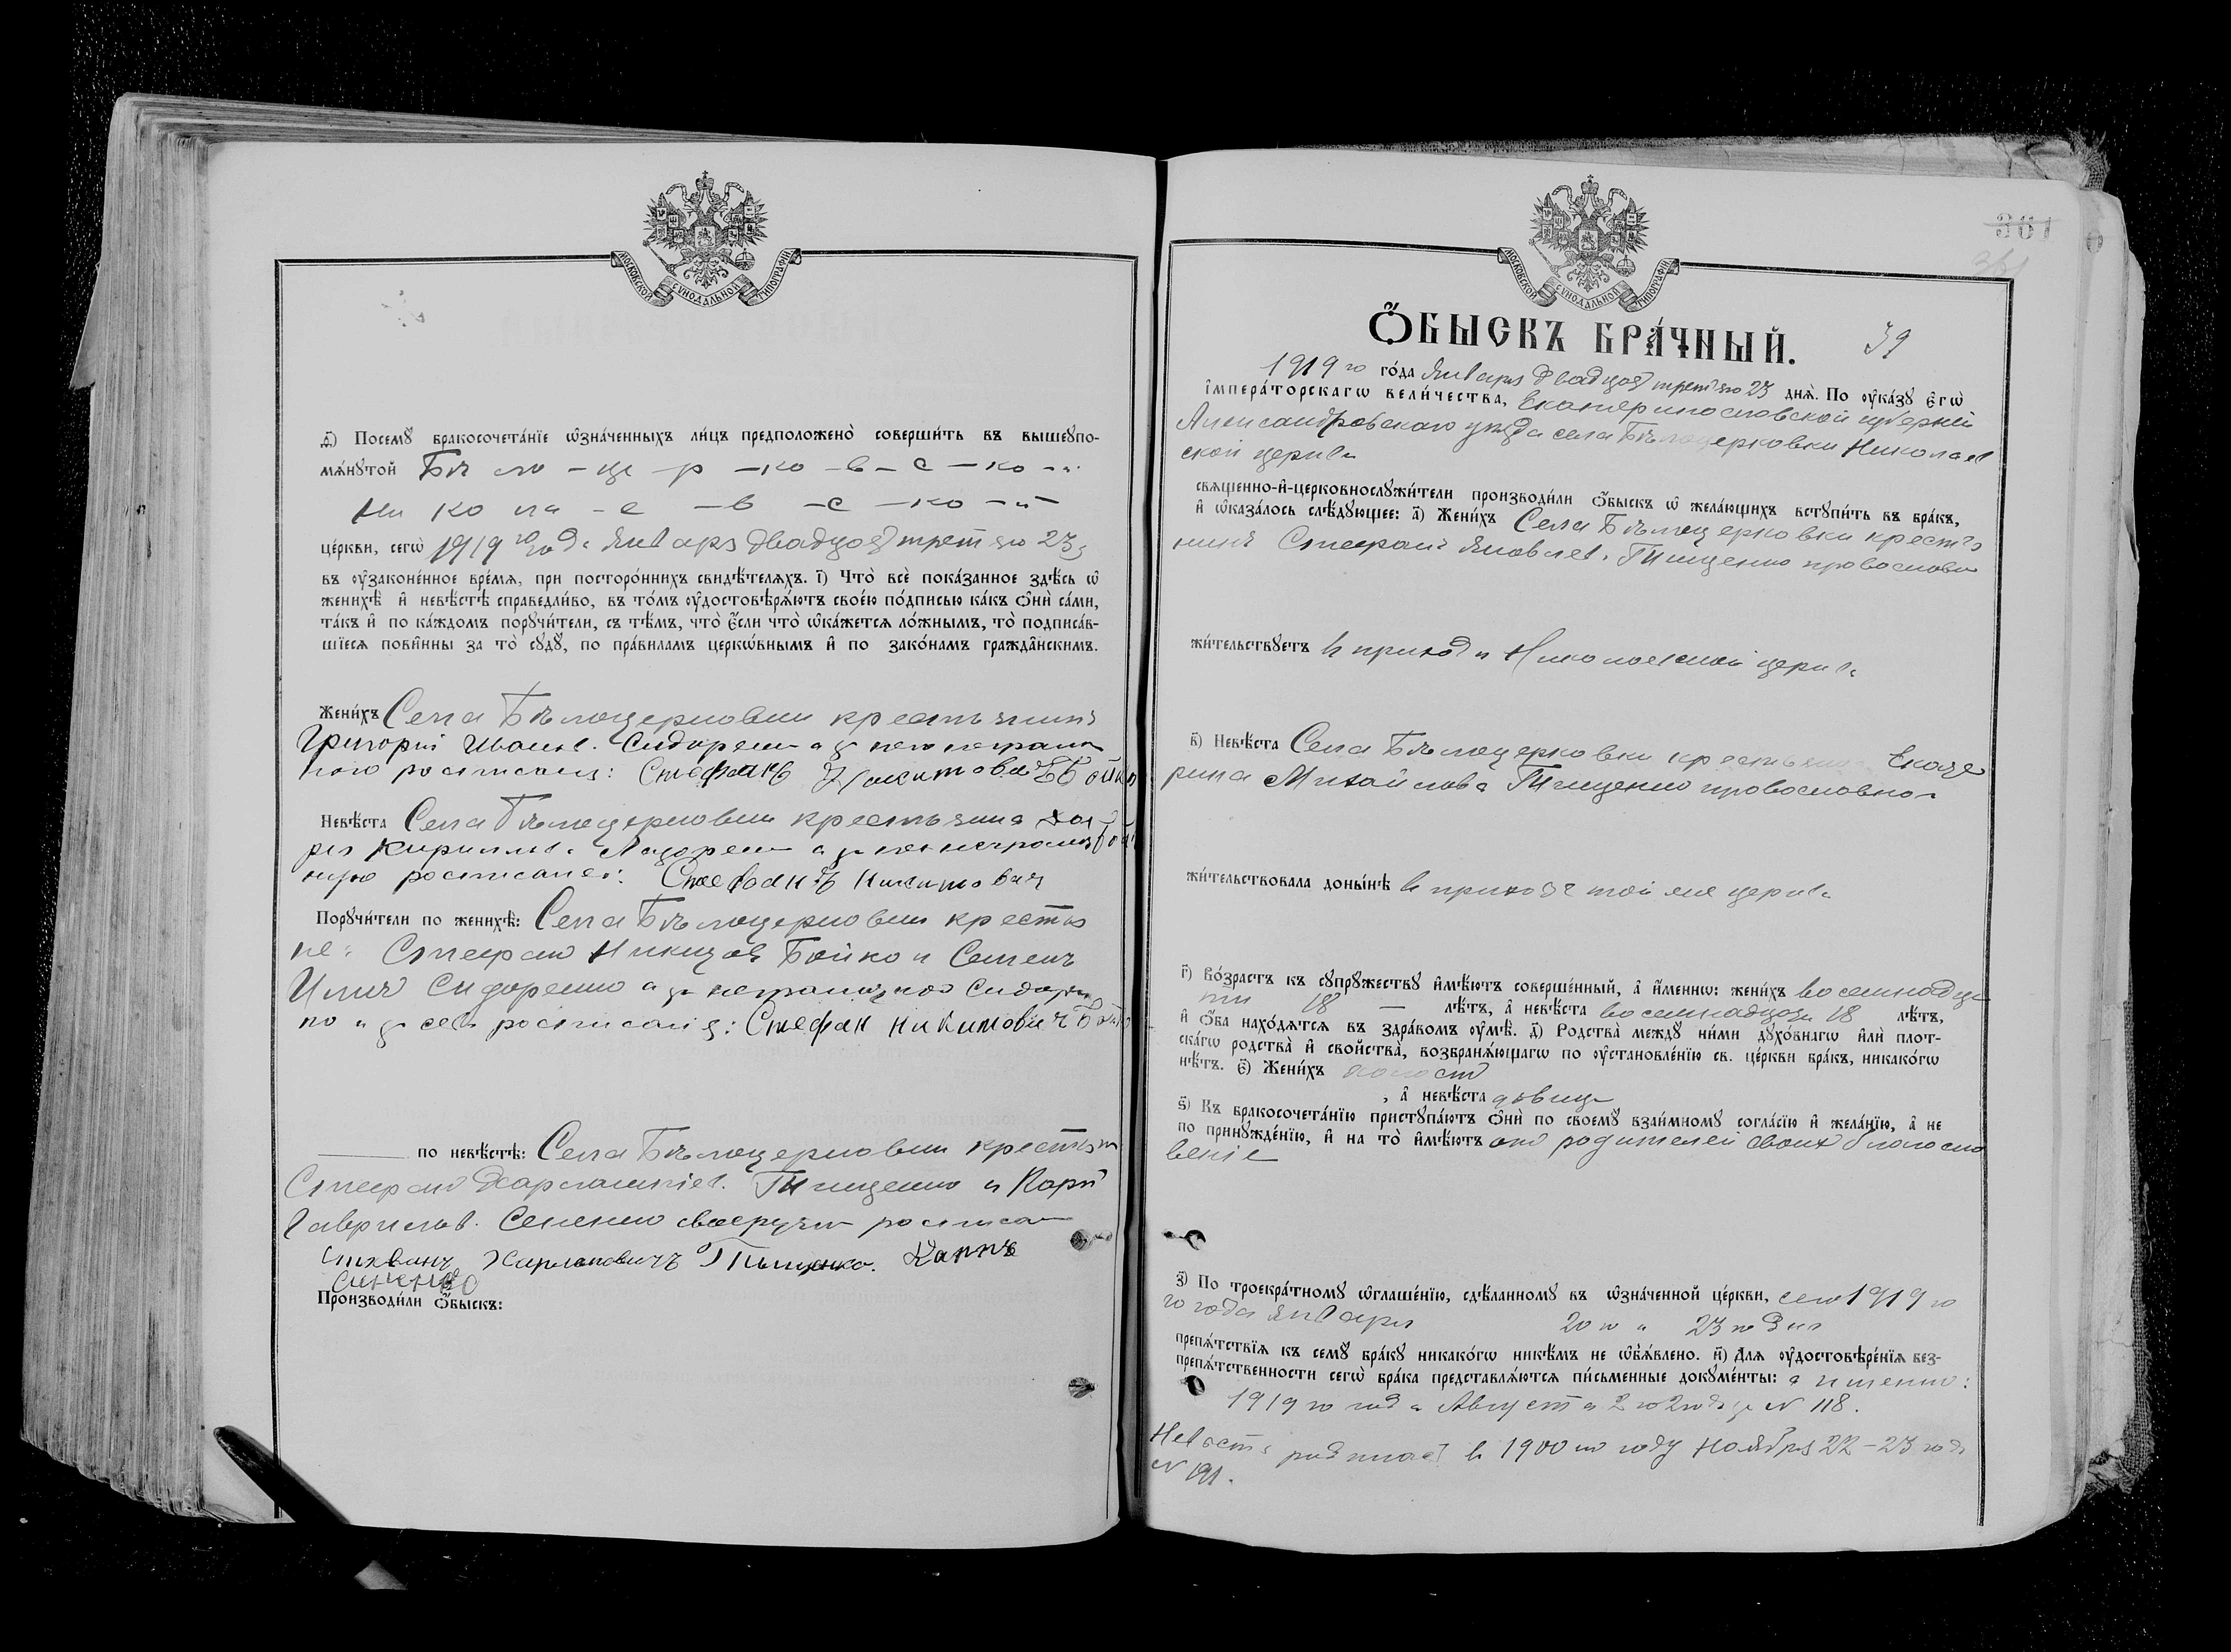 МОСКОВСКОЙ СѴНОДАЛЬНОЙ ТИПОГРАФІИ
д҃і) Посемꙋ̀ бракосочета́нїе ѡ҆зна́ченныхъ ли́цъ предположено̀ соверши́ть въ вышеꙋпо-
мѧ́нꙋтой Бѣ ло – це – р – ко – в – с – ко – й
Ни ко ла – е – в – с – ко – й
це́ркви, сегѡ̀ 1919 го года Января двадцат третяго 23
въ ᲂу҆зако́ненное вре́мѧ, при посторо́ннихъ свидѣ́телѧхъ. і҃) Что̀ всѐ пока́занное здѣ́сь ѡ҆
женихѣ̀ и҆ невѣ́стѣ справедли́во, въ то́мъ ᲂу҆достовѣрѧ́ютъ свое́ю по́дписью ка́къ ѻ҆нѝ са́ми,
та́къ и҆ по ка́ждомъ порꙋчи́тели, съ тѣ́мъ, что̀ є҆́сли что̀ ѡ҆ка́жетсѧ ло́жнымъ, то̀ подписа́в-
шїесѧ пови́нны за то̀ сꙋдꙋ̀, по пра́виламъ церкѡ́внымъ и҆ по зако́намъ гражда̑нскимъ.
Жени́хъ Села Бѣлоцерковки крестьянинъ
Григорій Иванов. Сидоренко а за него неграмот
ного росписался: Стефанъ Никитовичъ Бойко
Невѣ́ста Села Бѣлоцерковки крестьянка
Кирилов.
росписался: Стефанъ Никитович
Порꙋчи́тели по женихѣ̀: Села Бѣлоцерковки крестья
не: Стефан Никитов Бойко и Семенъ
Ильич Сидоренко а за неграмотного Сидорен
ко и за себя росписался: Стефан Никитович Бойко
по невѣ́стѣ: Села Бѣлоцерковки крестьян
Стефан Харлампіев. Тищенко и Карп
Гаврилов. Сененко своеручно росписал
Харлапович Тищенко. Карпъ
Сененко
Производи́ли ѻ҆́быскъ:
МОСКОВСКОЙ СѴНОДАЛЬНОЙ ТИПОГРАФІИ
361
361
Ѻ҆́БЫСКЪ БРА́ЧНЫЙ. 39
1919 го го́да Января двадцат третяго 23 днѧ̀. По ᲂу҆ка́зꙋ є҆гѡ̀
і҆мпера́торскагѡ вели́чества, Екатеринославской губерніи
Александровскаго уезда села Бѣлоцерковки Николаев
ской церкви
свѧще́нно-и҆-церковнослꙋжи́тели производи́ли ѻ҆́быскъ ѡ҆ жела́ющихъ встꙋпи́ть въ бра́къ,
и҆ ѡ҆каза́лось слѣ́дꙋющее: а҃) Жени́хъ Села Бѣлоцерковки крестья
нинъ Стефанъ Яковлев. Тищенко православн
жи́тельствꙋетъ в приходѣ Николаевской церкви
в҃) Невѣ́ста Села Бѣлоцерковки крестьянка Екате
рина Михайлова Тищенко православная
жи́тельствовала доны́нѣ в приходѣ той же церкви
г҃) Во́зрастъ къ сꙋпрꙋ́жествꙋ и҆мѣ́ютъ соверше́нный, а҆ и҆́меннѡ: жени́хъ восемнадца
ти 18 – лѣ́тъ, а҆ невѣ́ста восемнадцати 18 лѣ́тъ,
и҆ ѻ҆́ба нахо́дѧтсѧ въ здра́вомъ ᲂу҆мѣ̀. д҃) Родства̀ междꙋ ни́ми дꙋхо́внагѡ и҆лѝ пло́т-
ска́гѡ родства̀ и҆ сво́йства̀, возбранѧ́ющагѡ по ᲂу҆становле́нїю св. це́ркви бра́къ, никако́гѡ
нѣ́тъ. є҃) Жени́хъ холост
, а҆ невѣ́ста девица
ѕ҃) Къ бракосочета́нїю пристꙋпа́ютъ ѻ҆нѝ по своемꙋ̀ взаи́мномꙋ согла́сїю и҆ жела́нїю, а҆ не
по принꙋжде́нїю, и҆ на то̀ и҆мѣ́ютъ от родителей своих благосло
веніе
з҃) По троекра́тномꙋ ѡ҆глаше́нїю, сдѣ́ланномꙋ въ ѡ҆зна́ченной це́ркви, сего 1919 го
го года Января 20 го и 23 го дня
препѧ́тствїѧ къ семꙋ̀ бра́кꙋ никако́гѡ никѣ́мъ не ѡ҆б̾ѧ́влено. и҃) Длѧ ᲂу҆достовѣре́нїѧ без-
препѧ́тственности сегѡ̀ бра́ка представлѧ́ютсѧ пи́сьменные докꙋме́нты: а именно:
1919 го года Августа 2 го за № 118.
Невѣста родилась в 1900 м году Ноября 22 – 23 года
№ 191.